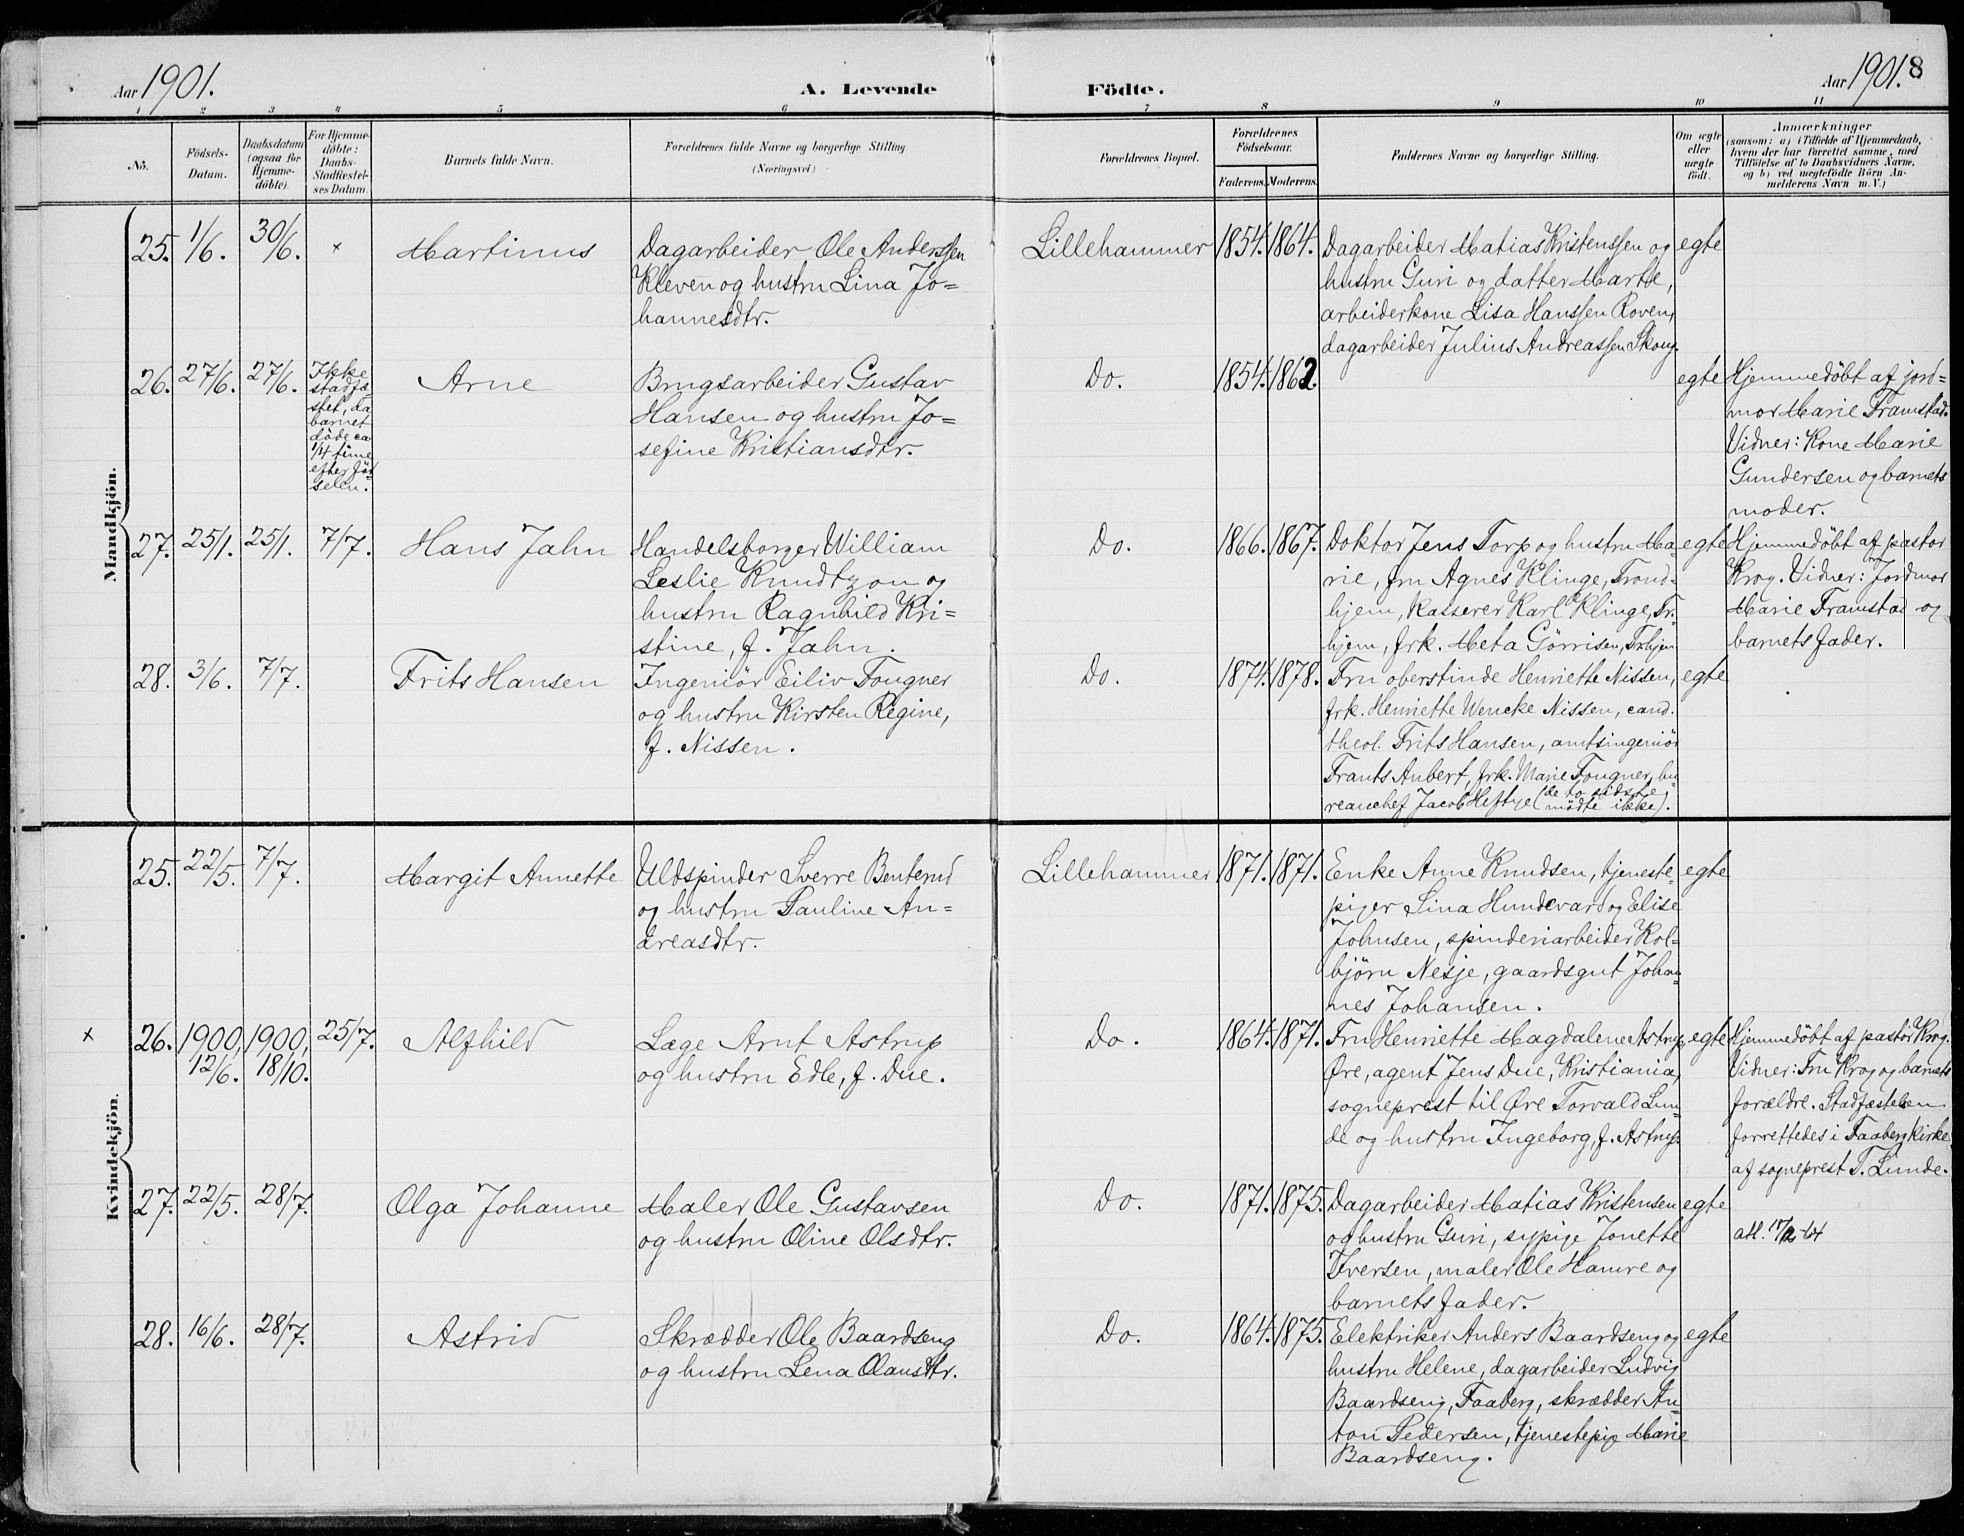 Aar 1901.
A. Levende Födte.
Aar 1901. 8
1 2 3 4 5 6 7 8 9 10 11
No.
Födsels-Datum.
Daabsdatum (ogsaa for Hjemme-döbte).
For Hjemme-döbte: Daabs-Stadfæstel-ses Datum.
Barnets fulde Navn.
Forældrenes fulde Navne og borgerlige Stilling. (Næringsvei.)
Forældrenes Bopæl.
Forældrenes Födselsaar.
Faderens. Moderens.
Faddernes Navne og borgerlige Stilling.
Om ægte eller uægte födt.
Anmærkninger
(saasom: a) i Tilfælde af Hjemmedaab, hvem der har forrettet samme, med Tilföielse af to Daabsvidners Navne, og b) ved uægtefödte Börn An-melderens Navn m. V.)
Mandkjön.
25. 1/6. 30/6. × Martinus
Dagarbeider Ole Anderssen
Kleven og hustru Lina Jo=
hannesdtr.
Lillehammer 1854. 1864.
Dagarbeider Matias Kristenssen og
hustru Guri og datter Marte,
arbeiderkone Lisa Hanssen Roven,
dagarbeider Julius Andreassen Skoug.
egte
26. 27/6. 27/6.
Ikke
stadfæ-
stet, da
barnet
døde ca
1/4 time
efter fød-
selen.
Arne
Brugsarbeider Gustav
Hansen og hustru Jo=
sefine Kristiansdtr.
Do. 1854. 1862. egte
Hjemmedøbt af jord=
mor Marie Framstad.
Vidner: Kone Marie
Gundersen og barnets
moder.
27. 25/1. 25/1. 7/7. Hans Jahn
Handelsborger William
Leslie Knudtzon og
hustru Ragnhild Kri=
stine, f. Jahn.
Do. 1866. 1867.
Doktor Jens Torp og hustru Ma-
rie, fru Agnes Klinge, Trond-
hjem, kasserer Karl Klinge, Tr.
hjem, frk. Meta Gørrisen, Trhjem
egte
Hjemmedøbt af pastor
Krog. Vidner: Jordmor
Marie Framstad og
barnets fader.
28. 3/6. 7/7. Frits Hansen
Ingeniør Eiliv Fougner
og hustru Kirsten Regine,
f. Nissen.
Do. 1874. 1878.
Fru oberstinde Henriette Nissen,
frk. Henriette Wencke Nissen, cand.
theol. Frits Hansen, amtsingeniør
Frants Aubert, frk. Marie Fougner, bu
reauchef Jacob Heftye (de to sidste mødte ikke).
egte
Kvindekjön.
25. 22/5. 7/7. Margit Annette
Uldspinder Sverre Benterud
og hustru Pauline An=
dreasdtr.
Lillehammer 1871. 1871.
Enke Anne Knudsen, tjeneste-
piger Lina Hundevard og Elise
Johnsen, spinderiarbeider Kol=
bjørn Nesje, gaardsgut Johan
nes Johansen.
egte
× 26. 1900, 12/6. 1900, 18/10. 25/7. Alfhild
Læge Arnt Astrup
og hustru Edle, f. Due.
Do. 1864. 1871.
Fru Henriette Magdalene Astrup,
Øre, agent Jens Due, Kristiania,
sogneprest til Øre Torvald Lun-
de og hustru Ingeborg, f. Astrup.
egte
Hjemmedøbt af pastor Krog.
Vidner: Fru Krog og barnets
forældre. Stadfæstelsen
forrettedes i Faaberg kirke
af sogneprest T. Lunde.
27. 22/5. 28/7. Olga Johanne
Maler Ole Gustavsen
og hustru Oline Olsdtr.
Do. 1871. 1875.
Dagarbeider Matias Kristensen
og hustru Guri, sypige Jonette
Iversen, maler Ole Hamre og
barnets fader.
egte
att. 17/2-64
28. 16/6. 28/7. Astrid
Skrædder Ole Baardseng
og hustru Lena Olausdtr.
Do. 1864. 1875.
Elektriker Anders Baardseng og
hustru Helene, dagarbeider Ludvig
Baardseng, Faaberg, skrædder An=
ton Pedersen, tjenestepig Marie
Baardseng.
egte